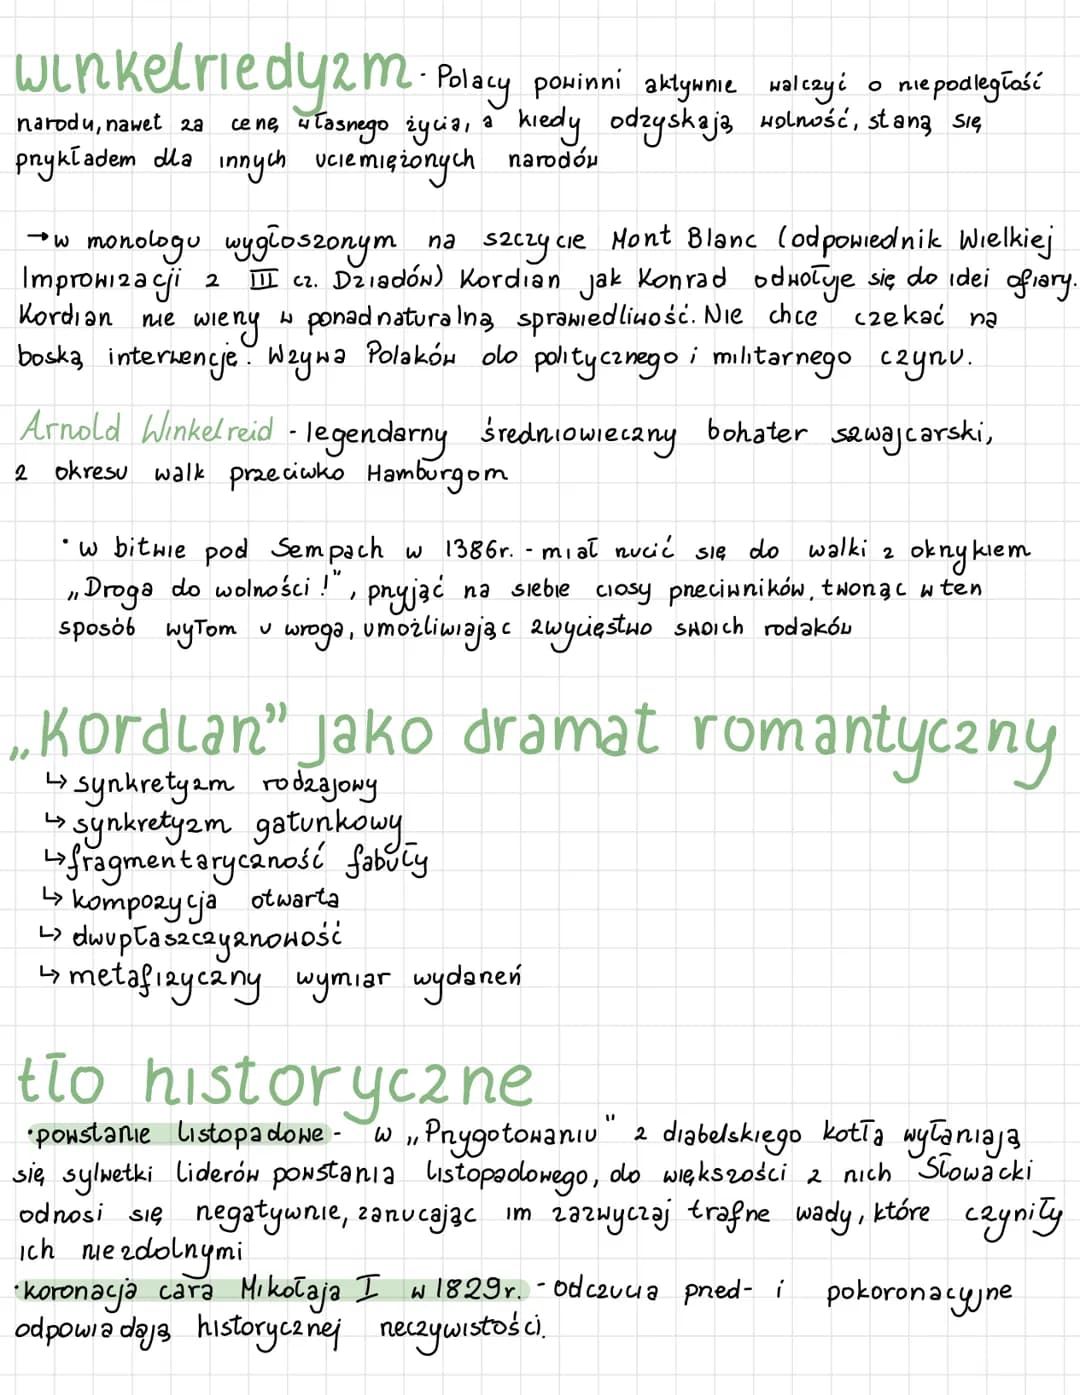 winkelriedyzm - Polacy powinni aktywnie walczyć o niepodległość
narodu, nawet za cenę własnego życia, a kiedy odzyskają wolność, staną się
przykładem dla innych uciemiężonych narodów
→ w monologu wygłoszonym na szczycie Mont Blanc (odpowiednik Wielkiej
Improwizacji z III cz. Dziadów) Kordian jak Konrad odwołuje się do idei ofiary.
Kordian nie wierzy w ponadnaturalną sprawiedliwość. Nie chce czekać na
boską interwencję. Wzywa Polaków do politycznego i militarnego czynu.
Arnold Winkelreid - legendarny średniowieczny bohater szwajcarski,
z okresu walk przeciwko Hamburgom
• w bitwie pod Sempach w 1386r. - miał rzucić się do walki z okrzykiem
„Droga do wolności!", przyjąć na siebie ciosy przeciwników, tworząc w ten
sposób wyłom u wroga, umożliwiając zwycięstwo swoich rodaków
„Kordian” jako dramat romantyczny
↳ synkretyzm rodzajowy
↳ synkretyzm gatunkowy
↳ fragmentaryczność fabuły
↳ kompozycja otwarta
↳ dwupłaszczyznowość
↳ metafizyczny wymiar wydarzeń
tło historyczne
• powstanie listopadowe - w „Przygotowaniu" z diabelskiego kotła wyłaniają
się sylwetki liderów powstania listopadowego, do większości z nich Słowacki
odnosi się negatywnie, zarzucając im zazwyczaj trafne wady, które czyniły
ich niezdolnymi
• koronacja cara Mikołaja I w 1829r. - odczucia przed- i pokoronacyjne
odpowiadają historycznej rzeczywistości.